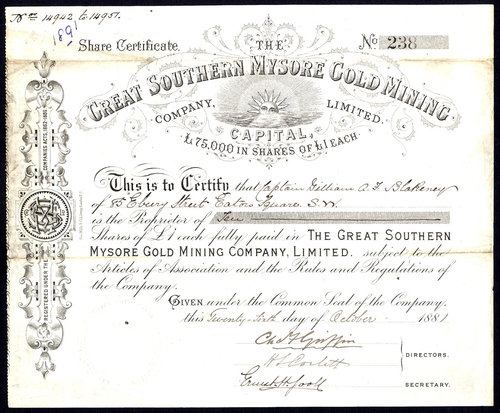 Nos 14942 to 14951.
1891
Share Certificate.
No 238
THE
GREAT SOUTHERN MYSORE GOLD MINING
COMPANY, LIMITED.
CAPITAL,
£75,000 IN SHARES OF £1 EACH.
This is to Certify that Captain William A. F. Blakeney
of 55 Ebury Street Eaton Square. S.W.
is the Proprietor of Ten
Shares of £1 each fully paid in THE GREAT SOUTHERN
MYSORE GOLD MINING COMPANY, LIMITED. subject to the
Articles of Association and the Rules and Regulations of
the Company.
GIVEN under the Common Seal of the Company,
this Twenty-sixth day of October 1881
Chas F Griffin
H S Corlett
DIRECTORS.
Ernest H. Jooll
SECRETARY.
REGISTERED UNDER THE
COMPANIES ACTS, 1862-1880